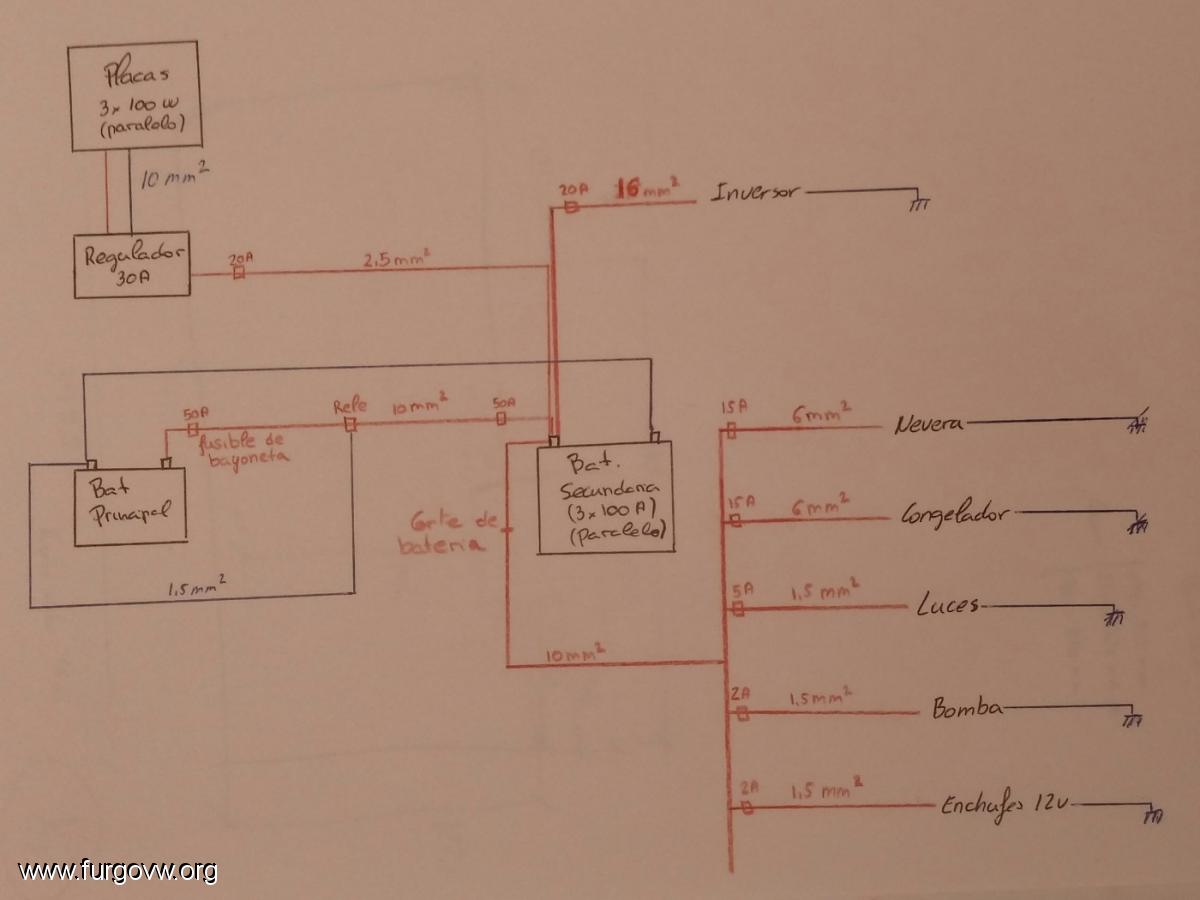 Placas
3x 100 w
(paralelo)
10 mm²
Regulador
30A
20A
2,5mm²
20A
16 mm²
Inversor
50A
fusible de
bayoneta
Rele
10mm²
50A
Bat
Principal
1,5mm²
Bat.
Secundaria
(3x100 A)
(paralelo)
Corte de
bateria
10mm²
15A
6mm²
Nevera
15A
6mm²
Congelador
5A
1,5mm²
Luces
2A
1,5mm²
Bomba
2A
1,5mm²
Enchufes 12v
www.furgovw.org